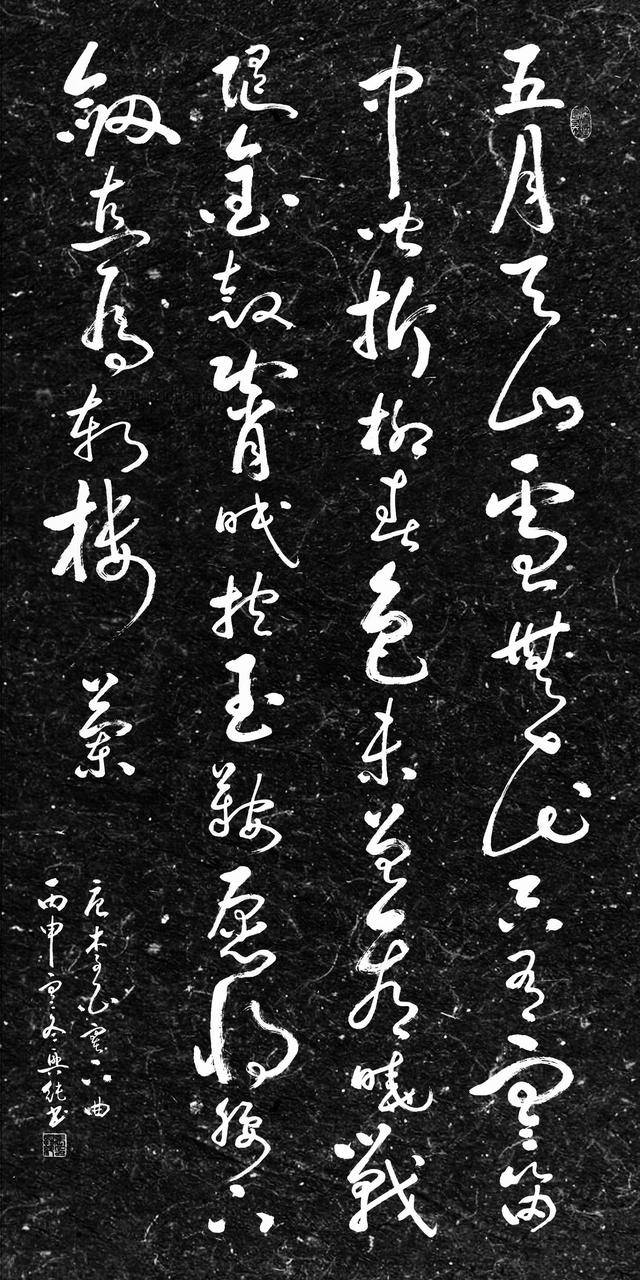 五月天山雪無花只有寒笛
中聞折柳春色未曾看曉戰
隨金鼓宵眠抱玉鞍愿將腰下
劔直為斬樓蘭
唐李白塞下曲
丙申寒冬興純书